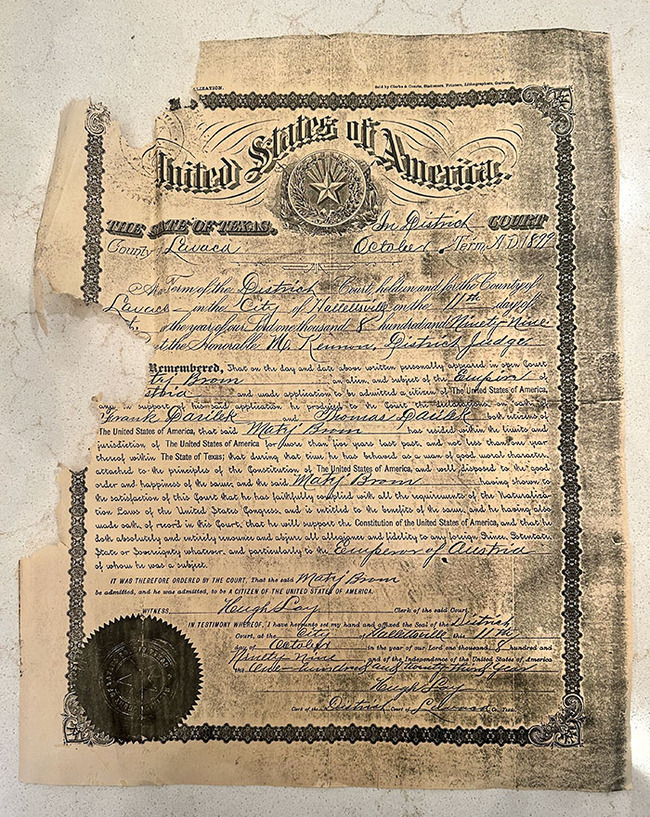 LIZATION.
Sold by Clarke & Courts, Stationers, Printers, Lithographers, Galveston.
United States of America.
THE STATE OF TEXAS. In District COURT
County Lavaca October Term, A.D. 1899
At a Term of the District Court, holden in and for the County of
Lavaca in the City of Hallettsville on the 11th day of
the year of our Lord one thousand 8 hundred and Ninety Nine
the Honorable M. Kennon, District Judge
Remembered, That on the day and date above written personally appeared in open Court
Brom an alien, and subject of the Empire
and made application to be admitted a citizen of The United States of America,
and in support of his said application he produced to the Court the
Frank and Thomas both citizens of
The United States of America, that said Matj Brom has resided within the limits and
jurisdiction of The United States of America for more than five years last past, and not less than one year
thereof within The State of Texas; that during that time he has behaved as a man of good moral character
attached to the principles of the Constitution of The United States of America, and well disposed to the good
order and happiness of the same; and the said Matj Brom having shown to
the satisfaction of this Court that he has faithfully complied with all the requirements of the Naturaliza-
tion Laws of the United States Congress and is entitled to the benefits of the same, and he having also
made oath, of record in this Court, that he will support the Constitution of the United States of America, and that he
doth absolutely and entirely renounce and abjure all allegiance and fidelity to any foreign Prince, Potentate,
State or Sovereignty whatever, and particularly to the Emperor of Austria
of whom he was a subject.
IT WAS THEREFORE ORDERED BY THE COURT, That the said Matj Brom
be admitted, and he was admitted, to be A CITIZEN OF THE UNITED STATES OF AMERICA.
WITNESS, Hugh Lay Clerk of the said Court
IN TESTIMONY WHEREOF, I have hereunto set my hand and affixed the Seal of the District
Court, at the City of Hallettsville this 11th
day of October in the year of our Lord one thousand 8 hundred and
Ninety-Nine and of the Independence of the United States of America
the One hundred and twenty third year
Hugh Lay
Clerk of the District Court of Lavaca Co. Texas.